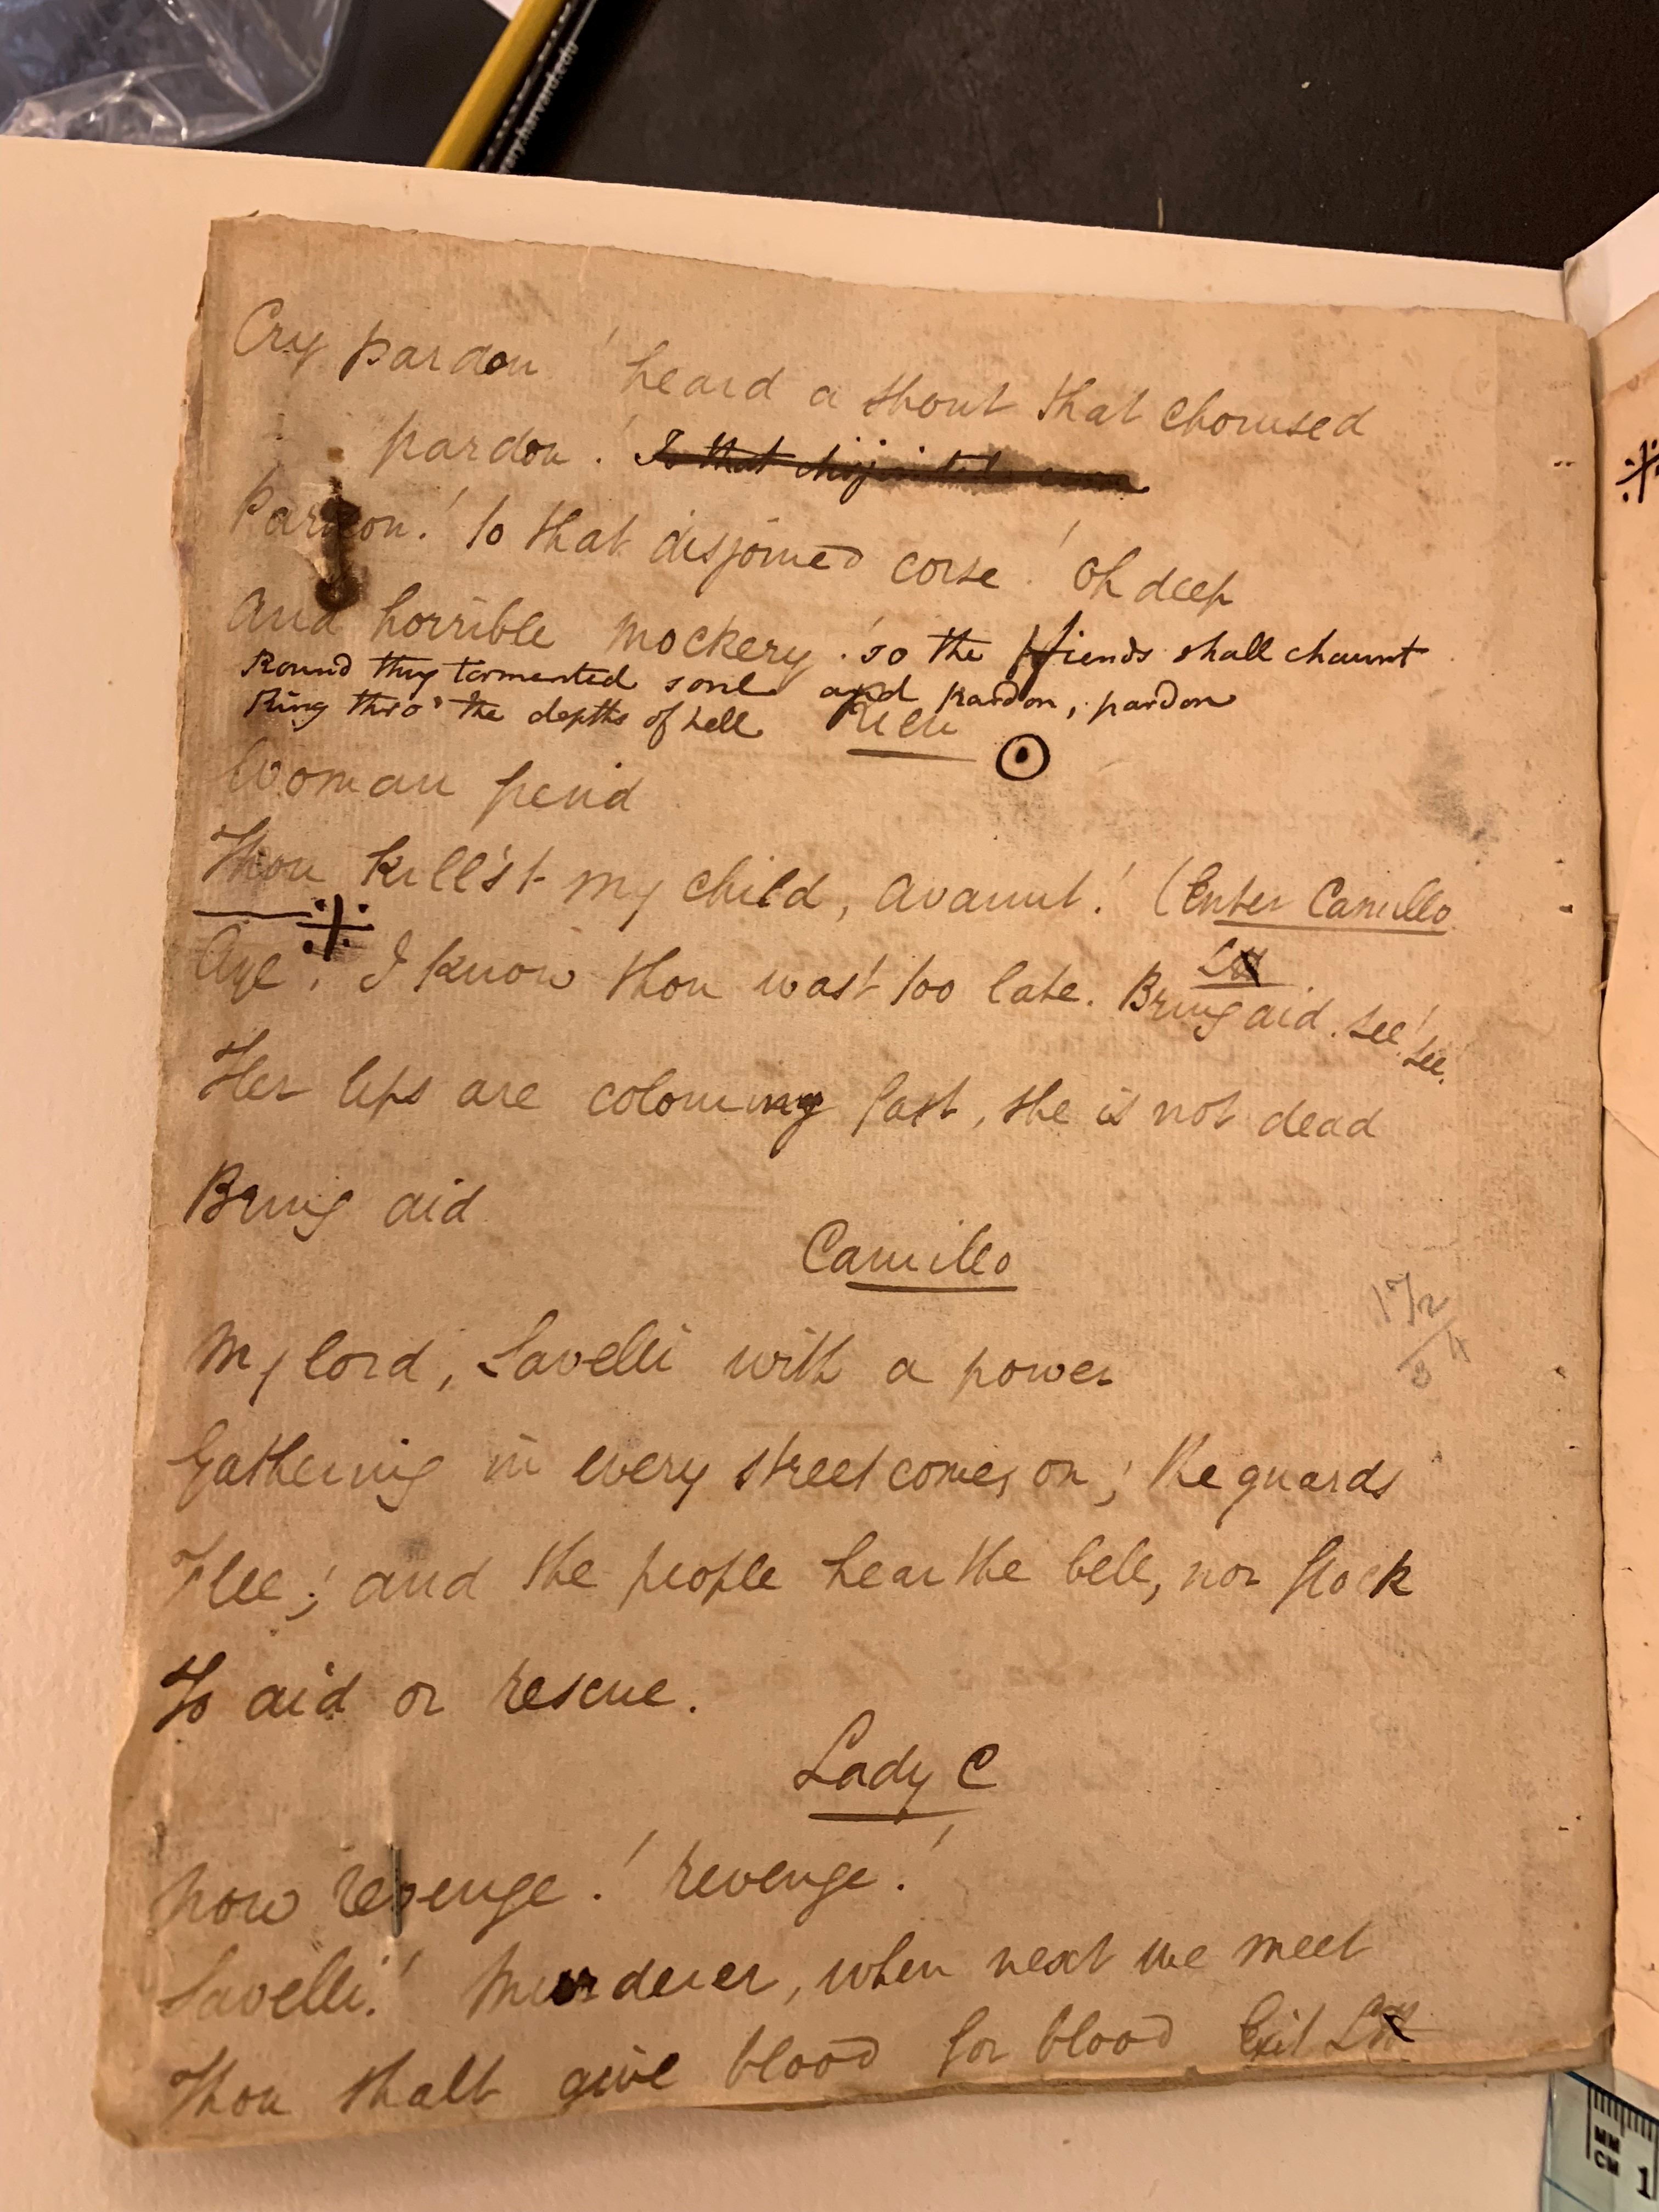 ery.harvard.edu
Cry pardon ! heard a shout that chorused
pardon ! To that disjointed
Pardon! to that disjoined corse ! Oh deep
And horrible mockery ! so the fiends shall chaunt
Round thy tormented soul and pardon, pardon
Ring thro' the depths of hell
Rien
Woman fiend
Thou kill'st my child, avaunt! (Enter Camillo
LH
Aye, I know thou wast too late. Bring aid. see! see!
Her lips are colouring fast, she is not dead
Bring aid
Camillo
My lord, Savelli with a power
Gathering in every street comes on; the guards
Flee; and the people hear the bell, nor flock
To aid or rescue.
17/2
34
Lady C
Now revenge! revenge!
Savelli! Murderer, when next we meet
Thou shalt give blood for blood Exit LH
MM
CM 1